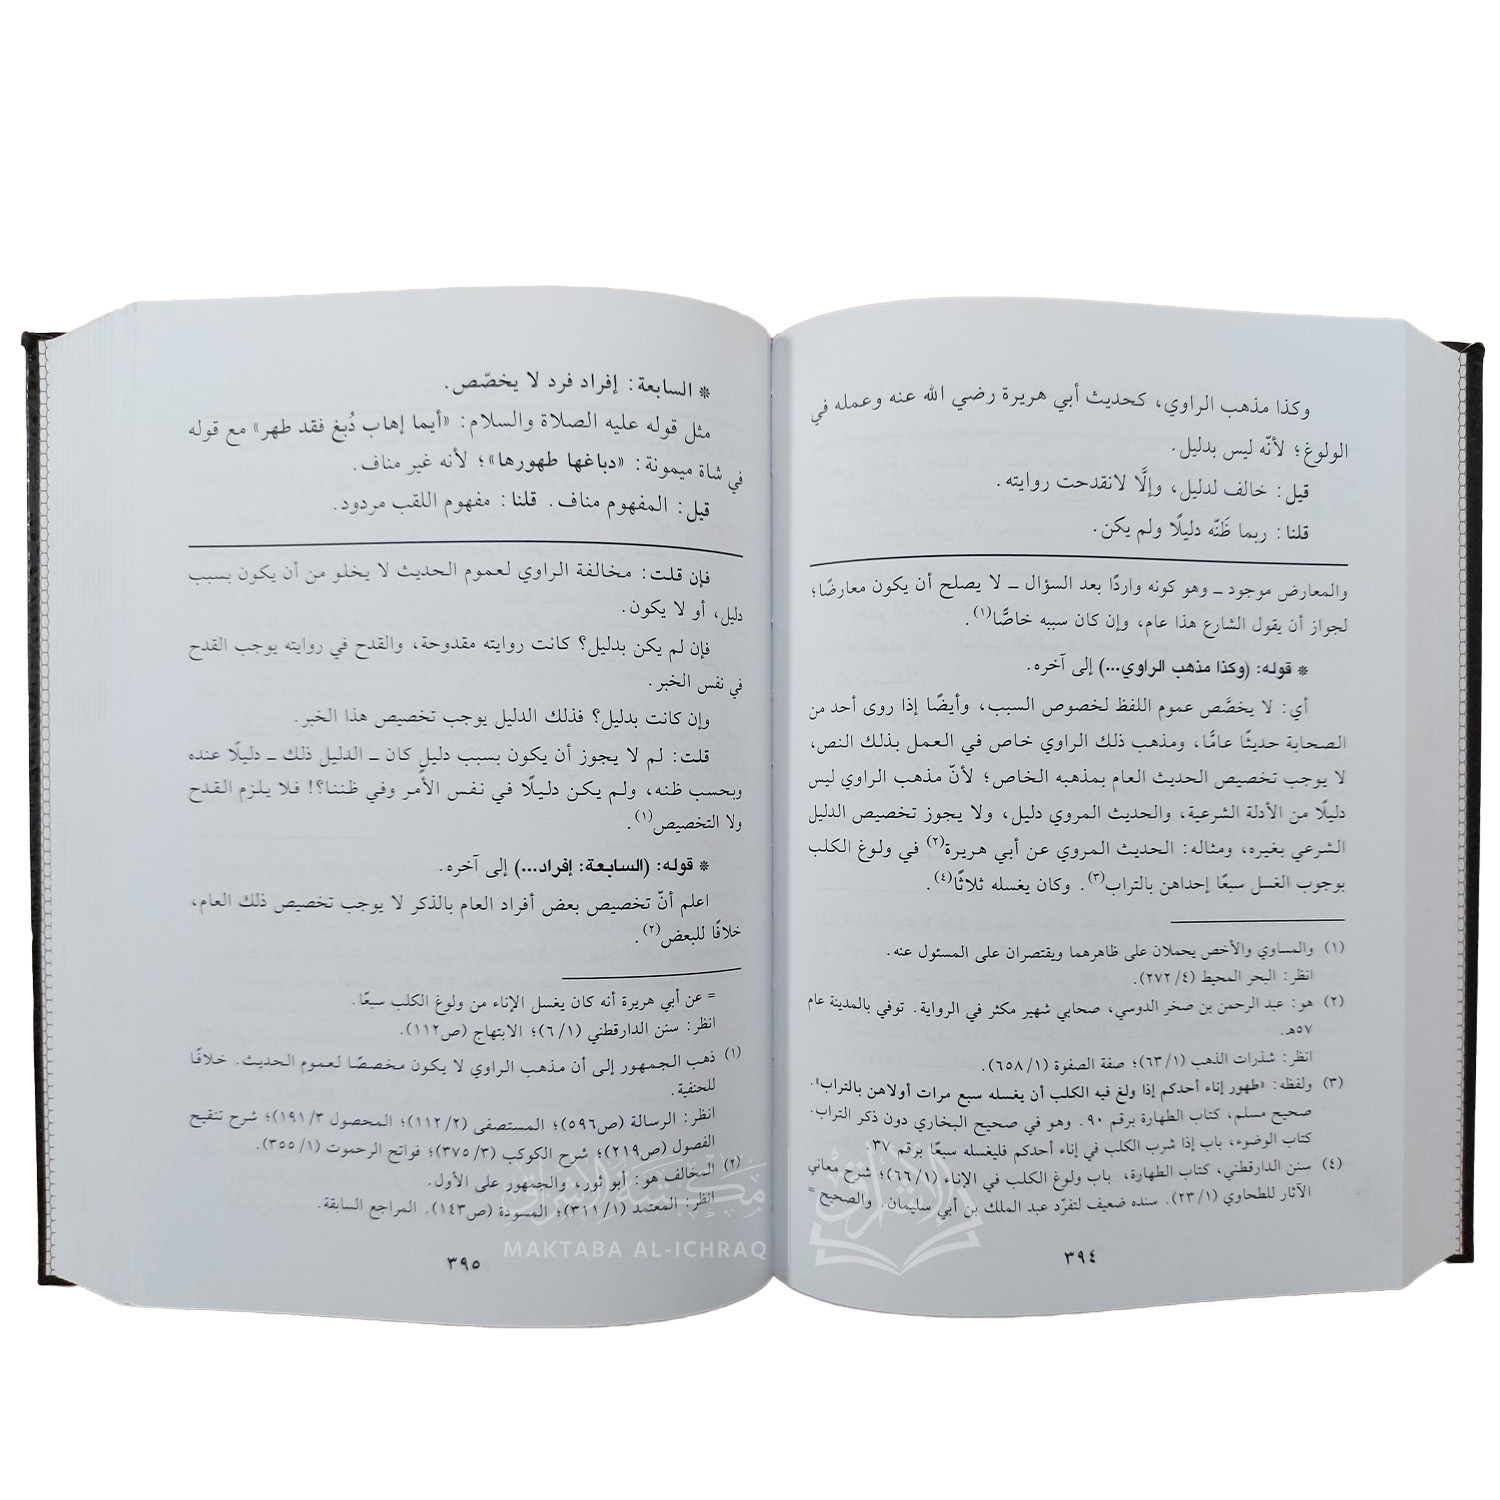 وكذا مذهب الراوي، كحديث أبي هريرة رضي الله عنه وعمله في
الولوغ؛ لأنّه ليس بدليل.
قيل: خالف لدليل، وإلَّا لانقدحت روايته.
قلنا: ربما ظَنّه دليلًا ولم يكن.
والمعارض موجود ــ وهو كونه واردًا بعد السؤال ــ لا يصلح أن يكون معارضًا؛
لجواز أن يقول الشارع هذا عام، وإن كان سببه خاصًّا(١).
* قوله: (وكذا مذهب الراوي...) إلى آخره.
أي: لا يخصَّص عموم اللفظ لخصوص السبب، وأيضًا إذا روى أحد من
الصحابة حديثًا عامًّا، ومذهب ذلك الراوي خاص في العمل بذلك النص،
لا يوجب تخصيص الحديث العام بمذهبه الخاص؛ لأنّ مذهب الراوي ليس
دليلًا من الأدلة الشرعية، والحديث المروي دليل، ولا يجوز تخصيص الدليل
الشرعي بغيره، ومثاله: الحديث المروي عن أبي هريرة(٢) في ولوغ الكلب
بوجوب الغسل سبعًا إحداهن بالتراب(٣). وكان يغسله ثلاثًا(٤).
(١) والمساوي والأخص يحملان على ظاهرهما ويقتصران على المسئول عنه.
انظر: البحر المحيط (٤/٢٧٢).
(٢) هو: عبد الرحمن بن صخر الدوسي، صحابي شهير مكثر في الرواية. توفي بالمدينة عام
٥٧هـ.
انظر: شذرات الذهب (١/٦٣)؛ صفة الصفوة (١/٦٥٨).
(٣) ولفظه: «طهور إناء أحدكم إذا ولغ فيه الكلب أن يغسله سبع مرات أولاهن بالتراب».
صحيح مسلم، كتاب الطهارة برقم ٩٠. وهو في صحيح البخاري دون ذكر التراب.
كتاب الوضوء، باب إذا شرب الكلب في إناء أحدكم فليغسله سبعًا برقم ٣٧.
(٤) سنن الدارقطني، كتاب الطهارة، باب ولوغ الكلب في الإناء (١/٦٦)؛ شرح معاني
الآثار للطحاوي (١/٢٣). سنده ضعيف لتفرّد عبد الملك بن أبي سليمان. والصحيح =
٣٩٤
* السابعة: إفراد فرد لا يخصّص.
مثل قوله عليه الصلاة والسلام: «أيما إهاب دُبغ فقد طهر» مع قوله
في شاة ميمونة: «دباغها طهورها»؛ لأنه غير مناف.
قيل: المفهوم مناف. قلنا: مفهوم اللقب مردود.
فإن قلت: مخالفة الراوي لعموم الحديث لا يخلو من أن يكون بسبب
دليل، أو لا يكون.
فإن لم يكن بدليل؟ كانت روايته مقدوحة، والقدح في روايته يوجب القدح
في نفس الخبر.
وإن كانت بدليل؟ فذلك الدليل يوجب تخصيص هذا الخبر.
قلت: لم لا يجوز أن يكون بسبب دليل كان ــ الدليل ذلك ــ دليلًا عنده
وبحسب ظنه، ولم يكن دليلًا في نفس الأمر وفي ظننا؟! فلا يلزم القدح
ولا التخصيص(١).
* قوله: (السابعة: إفراد...) إلى آخره.
اعلم أنّ تخصيص بعض أفراد العام بالذكر لا يوجب تخصيص ذلك العام،
خلافًا للبعض(٢).
= عن أبي هريرة أنه كان يغسل الإناء من ولوغ الكلب سبعًا.
انظر: سنن الدارقطني (١/٦)؛ الابتهاج (ص١١٢).
(١) ذهب الجمهور إلى أن مذهب الراوي لا يكون مخصصًا لعموم الحديث. خلافًا
للحنفية.
انظر: الرسالة (ص٥٩٦)؛ المستصفى (٢/١١٢)؛ المحصول ١٩١/٣)؛ شرح تنقيح
الفصول (ص٢١٩)؛ شرح الكوكب (٣/٣٧٥)؛ فواتح الرحموت (١/٣٥٥).
(٢) المخالف هو: أبو ثور، والجمهور على الأول.
انظر: المعتمد (١/٣١١)؛ المسودة (ص١٤٣). المراجع السابقة.
٣٩٥
مكتبة الإشراق
MAKTABA AL-ICHRAQ
الإشراق